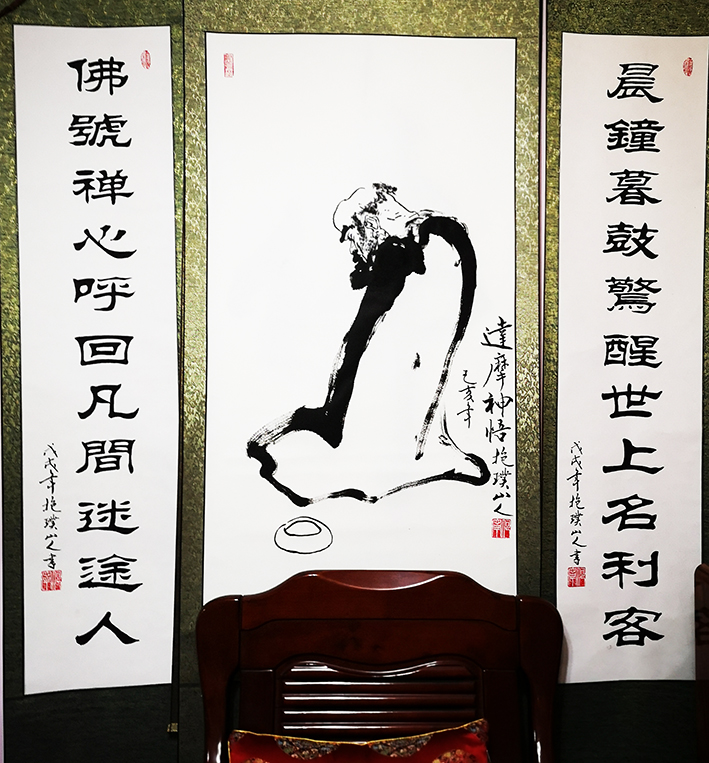 晨鐘暮鼓驚醒世上名利客
戊戌年抱璞山人書
達摩神悟
己亥年
抱璞山人
佛號禅心呼回凡間迷途人
戊戌年抱璞山人書